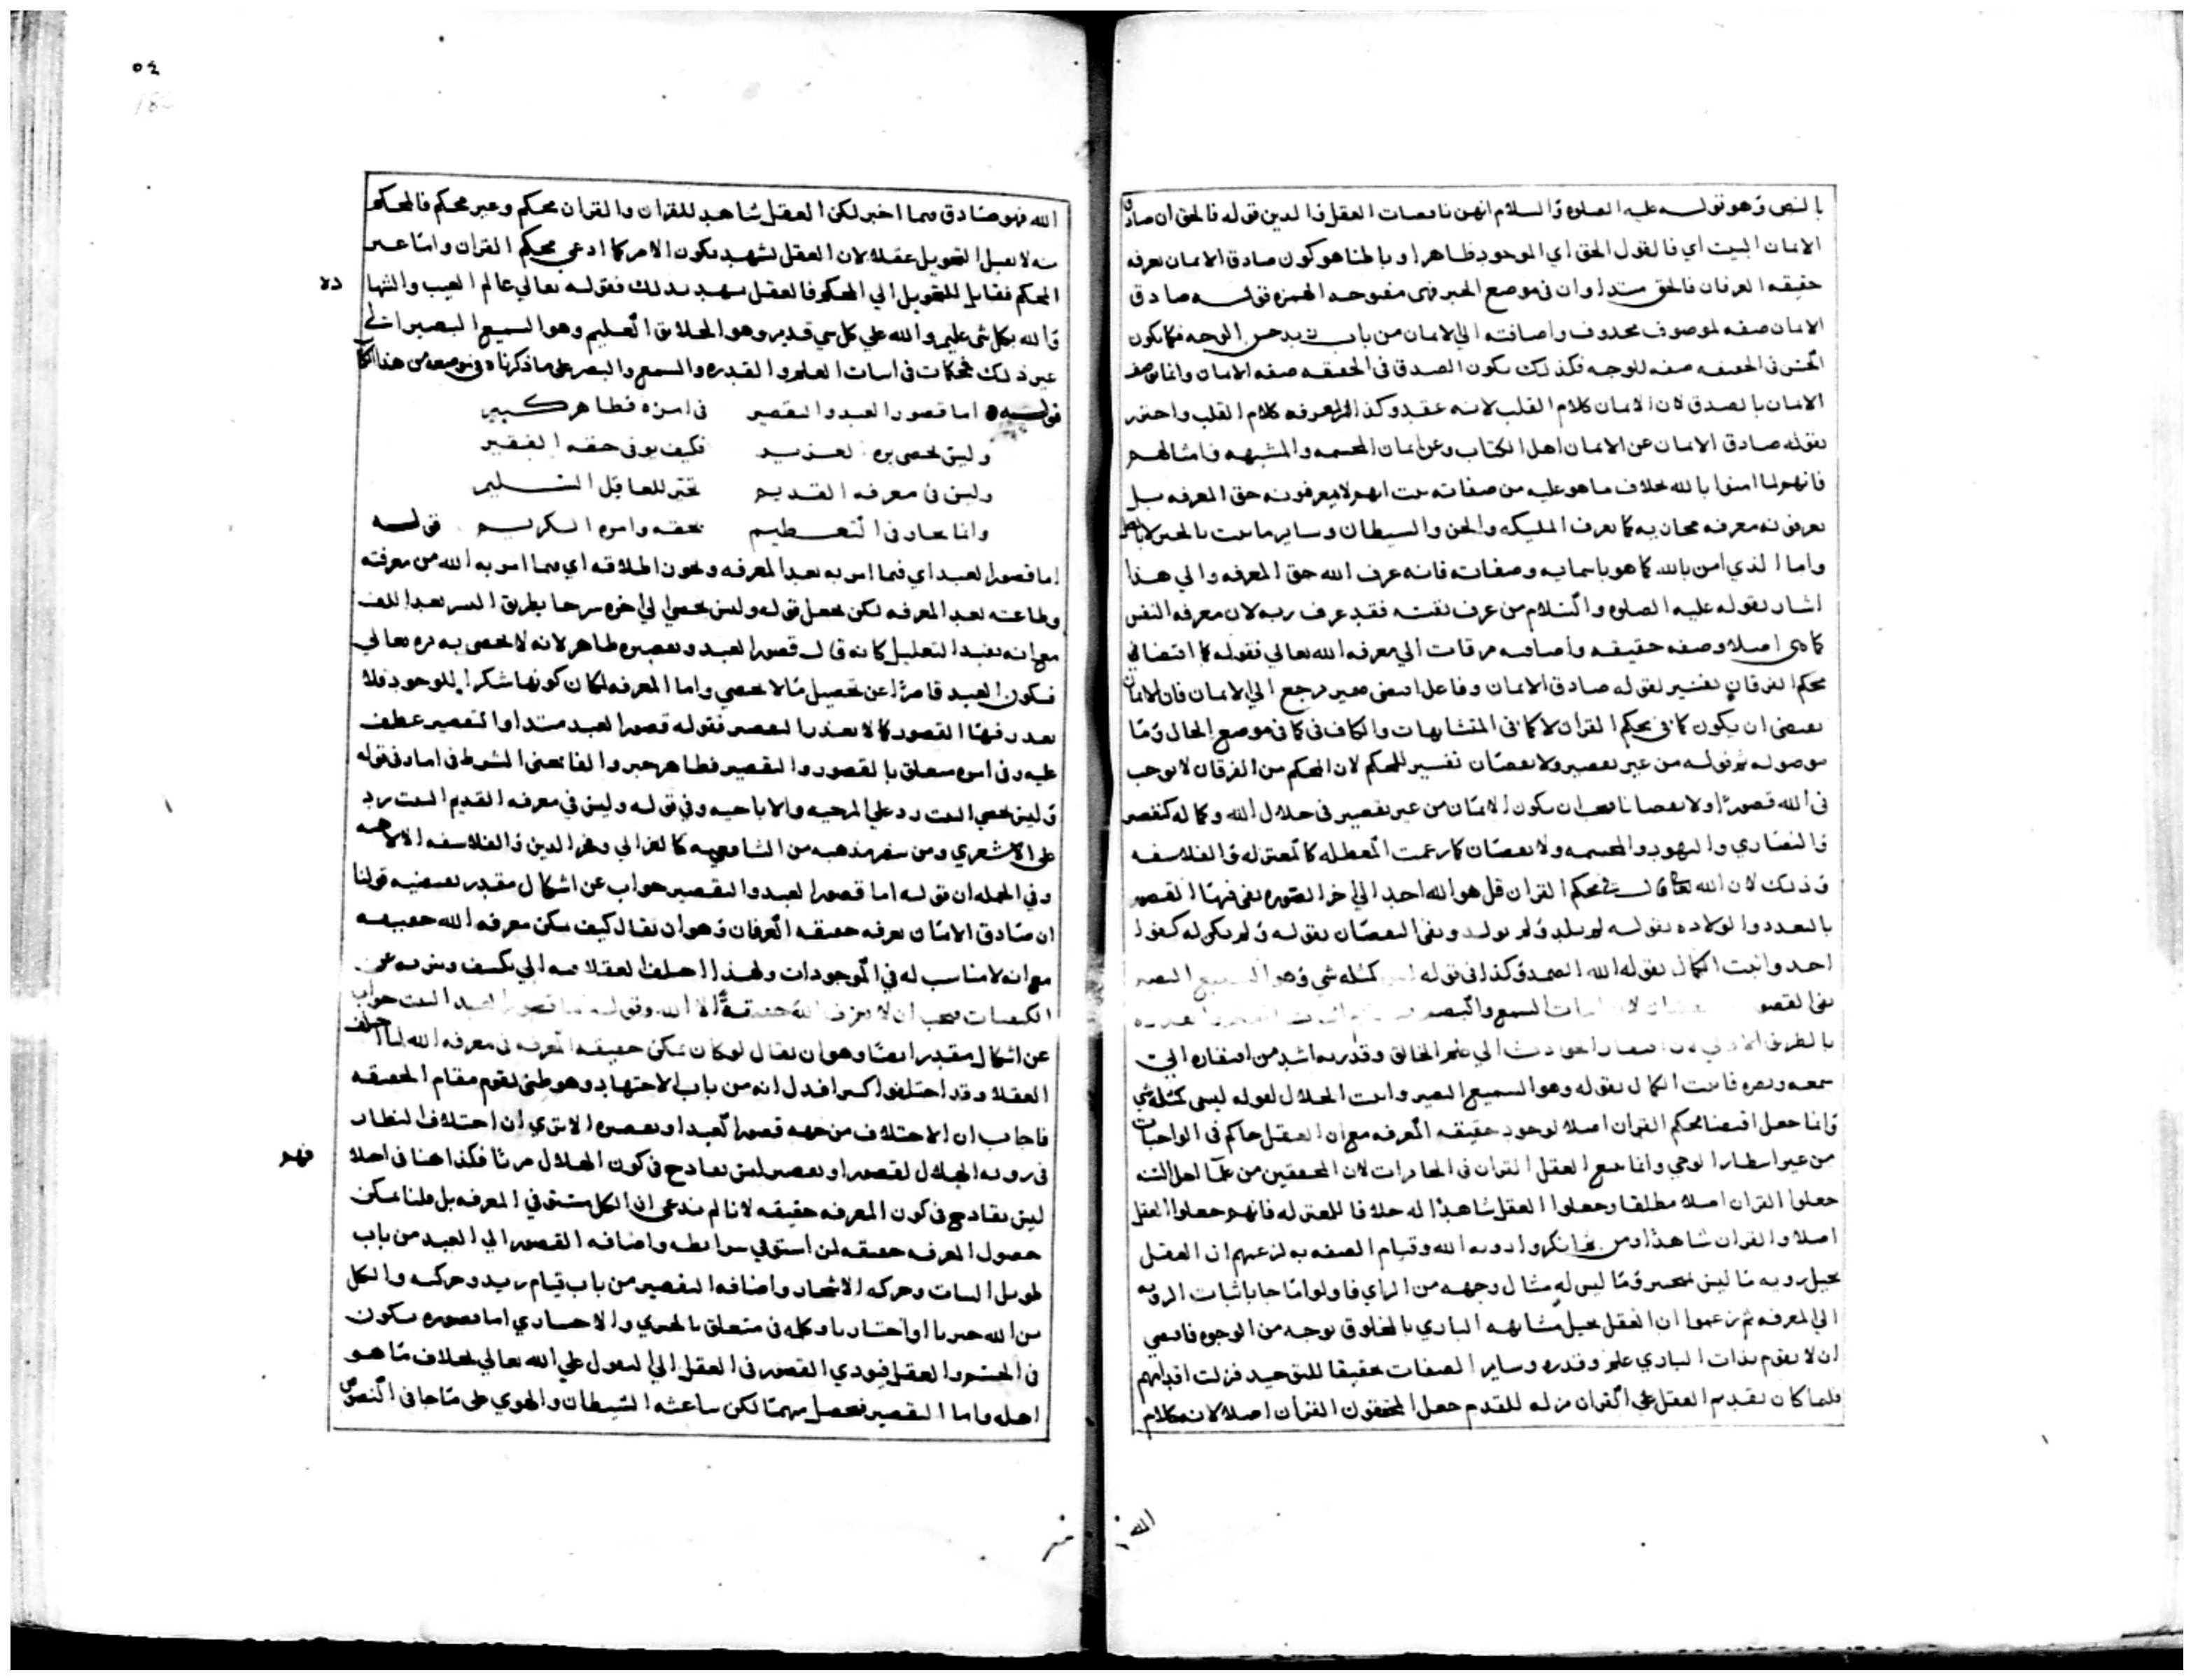 بالنص وهو قوله عليه الصلوة والسلام انهن ناقصات العقل والدين قوله فالحق ان صادق
الايمان البيت اي فالقول الحق اي الموجود ظاهرا وباطنا هو كون صادق الايمان يعرفه
حقيقه العرفان فالحق مبتدا وان في موضع الخبر فهي مفتوحه الهمزه قوله صادق
الايمان صفه لموصوف محذوف واضافته الي الايمان من باب زيد حسن الوجه فكما يكون
الحسن في الحقيقه صفه للوجه فكذلك يكون الصدق في الحقيقه صفه الايمان وانما وصف
الايمان بالصدق لان الايمان كلام القلب لانه عقد وكذا المعرفه كلام القلب واحترز
بقوله صادق الايمان عن الايمان اهل الكتاب وعن ايمان المجسمه والمشبهه وامثالهم
فانهم لما امنوا بالله بخلاف ما هو عليه من صفاته ثبت انهم لا يعرفونه حق المعرفه بل
يعرفونه معرفه مجازيه كما يعرف المليكه والجن والشيطان وساير ما ثبت بالخبر لا بالنظر
واما الذي امن بالله كما هو باسمايه وصفاته فانه عرف الله حق المعرفه والي هذا
اشار بقوله عليه الصلوه والسلام من عرف نفسه فقد عرف ربه لان معرفه النفس
كما هي اصلا وصفه حقيقه واضافه مرقات الي معرفه الله تعالي فقوله كما اقتضا في
محكم الفرقان تفسير لقوله صادق الايمان وفاعل اقتضي ضمير يرجع الي الايمان فان الايمان
يقتضي ان يكون كما في محكم القران لا كما في المتشابهات والكاف في كما في موضع الحال وما
موصوله ثم قوله من غير تقصير ولا نقصان تفسير للمحكم لان المحكم من الفرقان لا يوجب
في الله قصورا ولا نقصانا فيجب ان يكون الايمان من غير تقصير في جلال الله وكماله كتقصير
والنصاري واليهود والمجسمه ولا نقصان كما زعمت المعطله كالمعتزله والفلاسفه
وذلك لان الله تعالي قال في محكم القران قل هو الله احد الي اخر السوره نفي فيها القصور
بالتعدد والولاده بقوله لم يلد ولم يولد ونفي النقصان بقوله ولم يكن له كفوا
احد واثبت الكمال بقوله الله الصمد وكذا في قوله ليس كمثله شي وهو السميع البصير
نفي القصور ... السمع والبصر
بالطريق الاولي لان افتقار الحوادث الي علم الخالق وقدرته اشد من افتقاره الي
سمعه وبصره فاثبت الكمال بقوله وهو السميع البصير واثبت الجلال لقوله ليس كمثله شي
وانما جعل اقتضا محكم القران اصلا لوجود حقيقه المعرفه مع ان العقل حاكم في الواجبات
من غير انتظار الوحي وانما يتبع العقل القران في الجايزات لان المحققين من علما اهل السنه
جعلوا القران اصلا مطلقا وجعلوا العقل شاهدا له خلافا للمعتزله فانهم جعلوا العقل
اصلا والقران شاهدا ومن ثم انكروا رويه الله وقيام الصفه به لزعمهم ان العقل
يحيل رويه ما ليس بمتحيز وما ليس له مثال وجهه من الراي فاولوا ما جا باثبات الرويه
الي المعرفه ثم زعموا ان العقل يحيل مشابهه الباري بالمخلوق بوجه من الوجوه فاقتضي
ان لا يقوم بذات الباري علم وقدره وساير الصفات تحقيقا للتوحيد فزلت اقدامهم
فلما كان تقديم العقل علي القران مزله للقدم جعل المحققون القران اصلا لانه كلام
الله
٥٤
الله فهو صادق فيما اخبر لكن العقل شاهد للقران والقران محكم وغير محكم فالمحكم
منه لا يقبل التحويل عقلا لان العقل يشهد بكون الامر كما ادعي محكم القران واما غير
المحكم فقابل للتحويل الي المحكم فالعقل يشهد بذلك فقوله تعالي عالم الغيب والشهاده
والله بكل شي عليم والله علي كل شي قدير وهو الخلاق العليم وهو السميع البصير الي
غير ذلك محكمات في اثبات العلم والقدره والسمع والبصر علي ما ذكرناه في موضعه من هذا الكتاب
قوله اما قصور العبد والتقصير في امره فظاهر كبير
وليس يحصي بره العزيز فكيف يوفي حقه الفقير
وليس في معرفه القديم تحير للعاقل السليم
وانما يحار في التعظيم بحقه وامره الكريم قوله
اما قصور العبد اي فيما امر به بعد المعرفه ويجوز اطلاقه اي فيما امر به الله من معرفته
وطاعته بعد المعرفه لكن يجعل قوله وليس يحصي الي اخره شرحا بطريق النشر بعد اللف
مع انه يفيد التعليل كانه قال قصور العبد وتقصيره ظاهر لانه لا يحصي بره تعالي
فيكون العبد قاصرا عن تحصيل ما لا يحصي واما المعرفه لمكان كونها شكرا للوجود فلا
يعذر فيها القصور كما لا يعذر التقصير فقوله قصور العبد مبتدا والتقصير عطف
عليه وفي امره متعلق بالقصور والتقصير فظاهر خبر والفا لمعني الشرط في اما وفي قوله
وليس يحصي البيت رد علي المرجيه والاباحيه وفي قوله وليس في معرفه القديم البيت رد
علي الاشعري ومن مذهبه من الشافعيه كالغزالي وفخر الدين والفلاسفه
وفي الجمله ان قوله اما قصور العبد والتقصير جواب عن اشكال مقدر يقتضيه قولنا
ان صادق الايمان يعرفه حقيقه العرفان وهو ان يقال كيف يمكن معرفه الله حقيقه
مع انه لا مناسب له في الموجودات ولهذا اختلف العقلا فيه
الكيفيات فيجب ان لا يعرف الله حقيقة الا الله وقوله اما قصور العبد البيت جواب
عن اشكال مقدر ايضا وهو ان يقال لو كان يمكن حقيقه المعرفه في معرفه الله لما اختلف
العقلا وقد اختلفوا كثيرا فدل انه من باب الاجتهاد وهو ظني يقوم مقام الحقيقه
فاجاب ان الاختلاف من جهه قصور العبد او تقصيره الا تري ان اختلاف النظار
في رويه الهلال لقصور او تقصير ليس بقادح في كون الهلال مرئيا فكذا هنا
فهو
ليس بقادح في كون المعرفه حقيقه لانا لم ندعي ان الكل مستو في المعرفه بل قلنا يمكن
حصول المعرفه حقيقه لمن استوفي شرايطه واضافه القصور الي العبد من باب
طويل النبات وحركه الاشجار واضافه التقصير من باب قيام زيد وحركته والكل
من الله جبريا او اختياريا وكله في متعلق بالجبري والاختياري اما قصوره فيكون
في الحس والعقل فيودي القصور في العقل الي القول علي الله تعالي بخلاف ما هو
اهله واما التقصير فيحصل منهما لكن ساعده الشيطان والهوي علي ما جا في النصوص